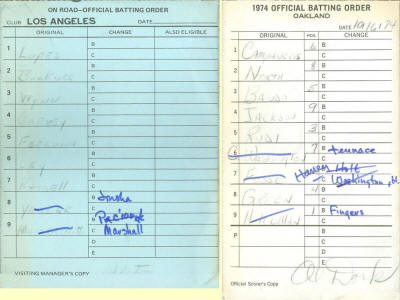 ON ROAD-OFFICIAL BATTING ORDER
CLUB LOS ANGELES DATE
ORIGINAL CHANGE ALSO ELIGIBLE
1 Lopes B
C
2 Buckner B
C
3 Wynn B
C
4 Garvey B
C
5 Ferguson B
C
6 Cey B
C
7 Russell B
C
8 Yeager B Joshua
C Paciorek
9 B Marshall
C
D
E
VISITING MANAGER'S COPY
1974 OFFICIAL BATTING ORDER
OAKLAND
DATE 10/16/74
ORIGINAL POS. CHANGE ALSO ELIGIBLE
1 Campaneris 6 B
C
2 North 8 B
C
3 Bando 5 B
C
4 Jackson 9 B
C
5 Rudi 3 B
C
6 Washington 7 B Tennace
C
7 B Holt
C Washington, H
8 Green 4 B
C
9 Holtzman 1 B Fingers
C
P B
C
D
E
Official Scorer's Copy
Al Dark